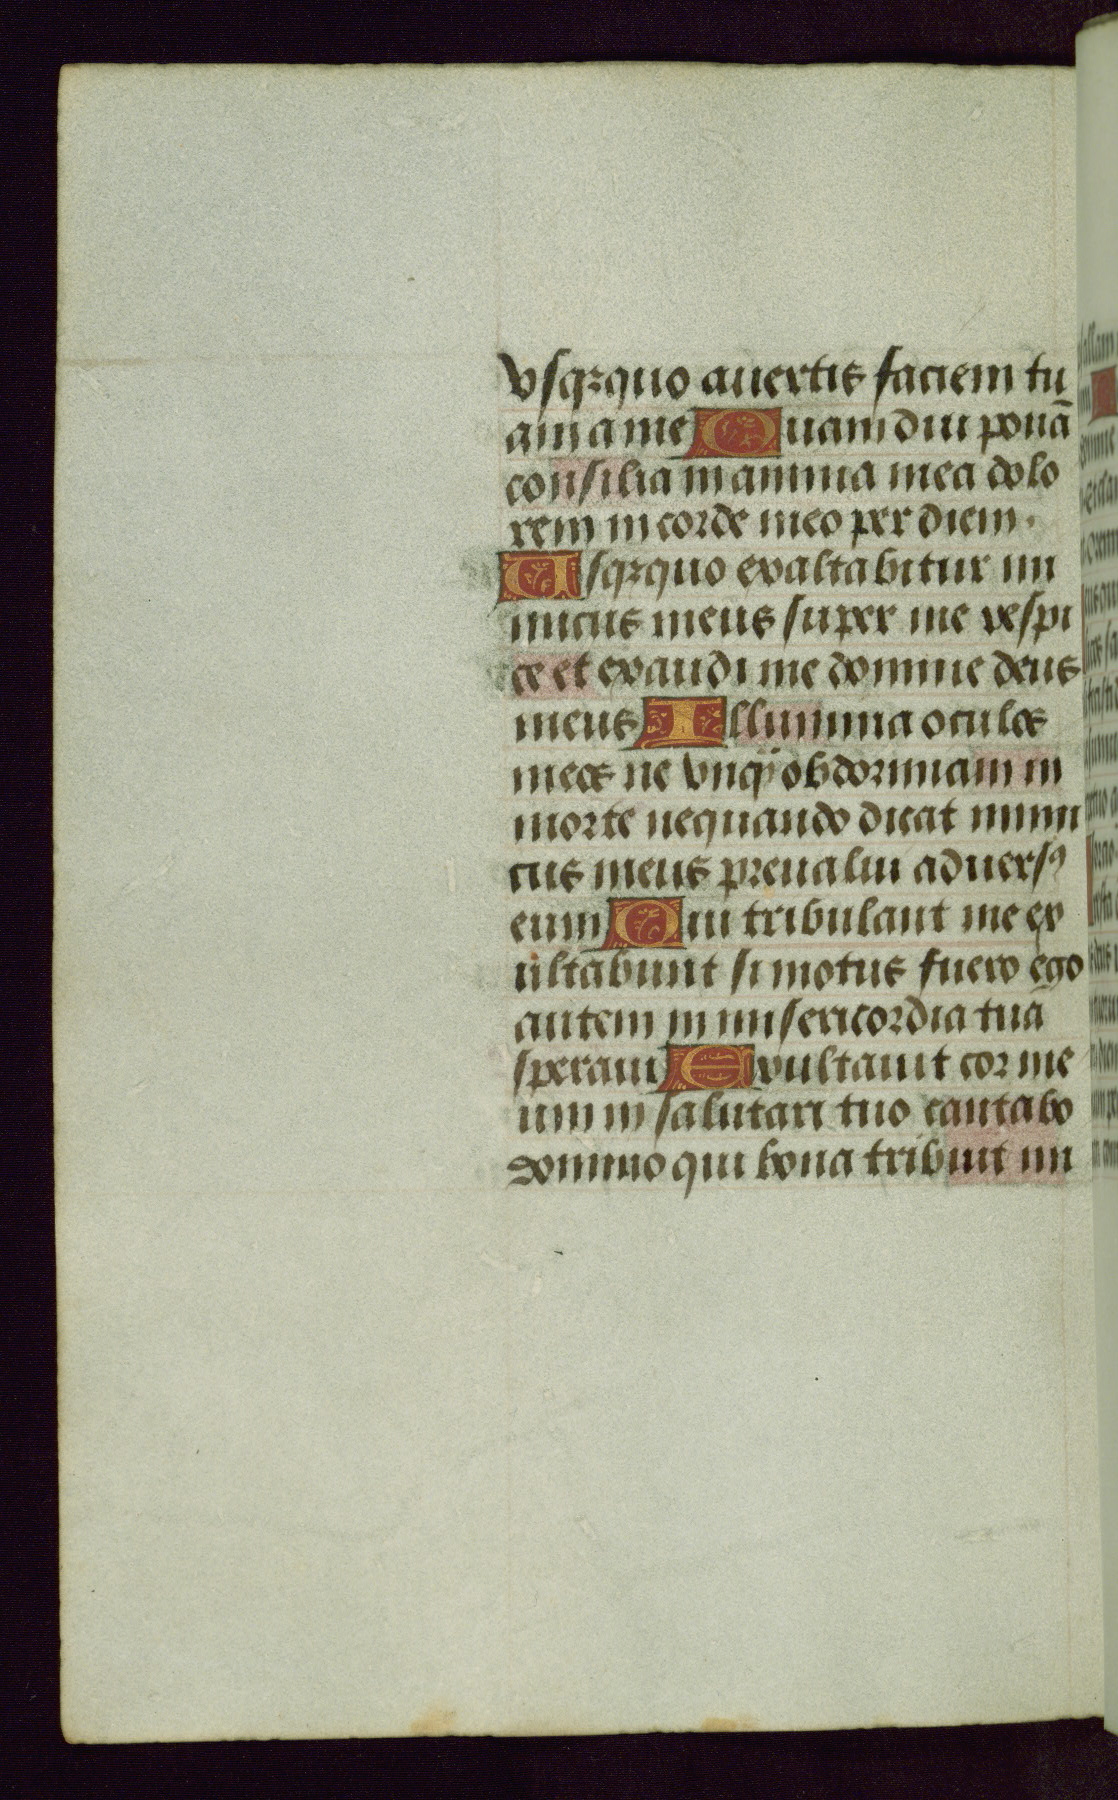 vsqꝫquo auertis faciem tu
am a me Quamdiu ponã
consilia in anima mea dolo
rem in corde meo per diem.
Usqꝫquo exaltabitur ini
micus meus super me respi
ce et exaudi me domine deus
meus Illumina oculos
meos ne vnq̃ obdormiam in
morte nequando dicat inimi
cus meus preualui aduersꝰ
eum Qui tribulant me ex
ultabunt si motus fuero ego
autem in misericordia tuã
speraui Exultauit cor me
um in salutari tuo cantabo
domino qui bona tribuit mi